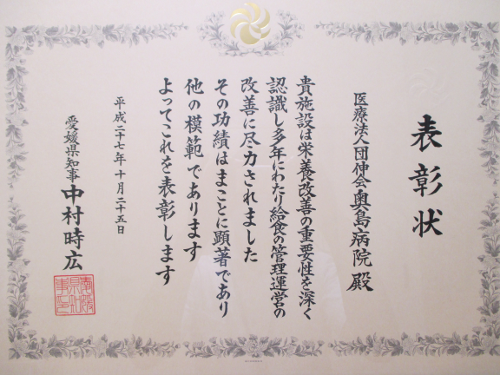 表彰状
医療法人団伸会奥島病院 殿
貴施設は栄養改善の重要性を深く
認識し多年にわたり給食の管理運営の
改善に尽力されました
その功績はまことに顕著であり
他の模範であります
よってこれを表彰します
平成二十七年十月二十五日
愛媛県知事 中村時広